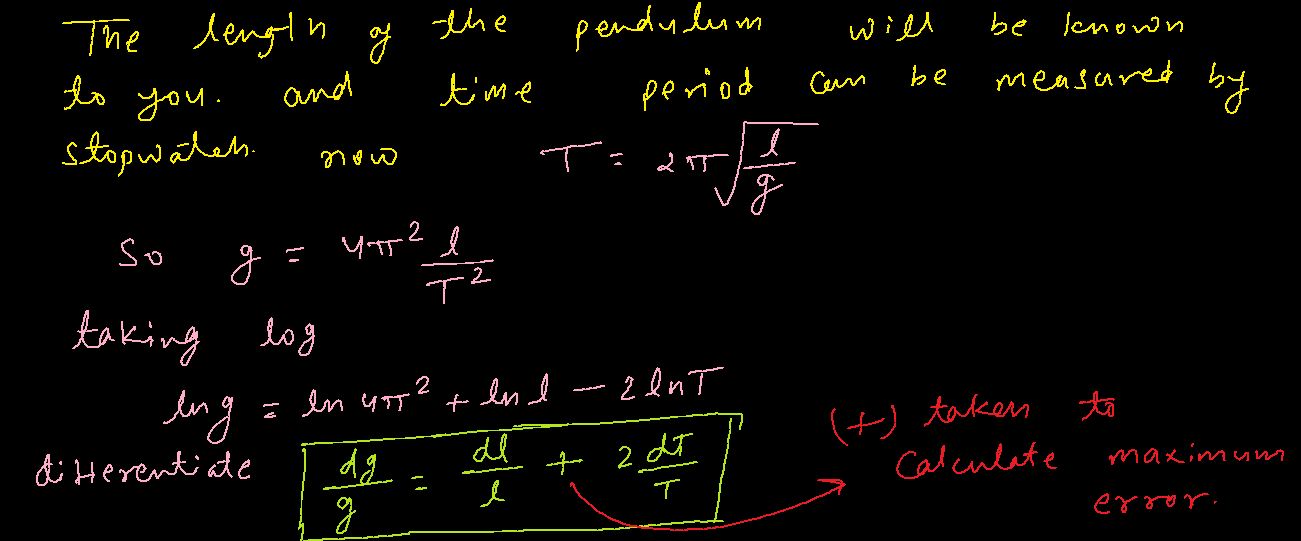 The length of the pendulum will be known
to you. and time period can be measured by
stopwatch. now T = 2π√(l/g)
So g = 4π² l/T²
taking log
ln g = ln 4π² + ln l − 2 ln T
differentiate dg/g = dl/l + 2 dT/T
(+) taken to
Calculate maximum
error.